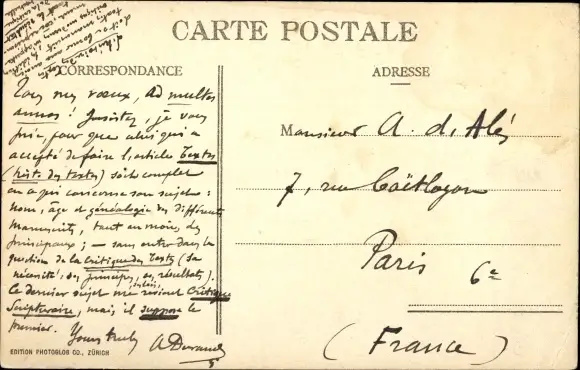 CARTE POSTALE
CORRESPONDANCE
Tous mes vœux, ad multos
annos! Insistez, je vous
prie, pour que celui qui a
accepté de faire l'article Textes
(hist. des textes) soit complet
en ce qui concerne son sujet :
nom, âge et généalogie des différents
manuscrits, tout au moins, des
principaux ; — sans entrer dans la
question de la Critique des Textes (sa
nécessité, ses principes, ses résultats).
Ce dernier sujet me revient Critique
Scripturaire, mais il suppose le
premier.
Yours truly
A Durand
EDITION PHOTOGLOB CO., ZÜRICH
ADRESSE
Monsieur A. d'Alès
7, rue Coëtlogon
Paris 6e
(France)